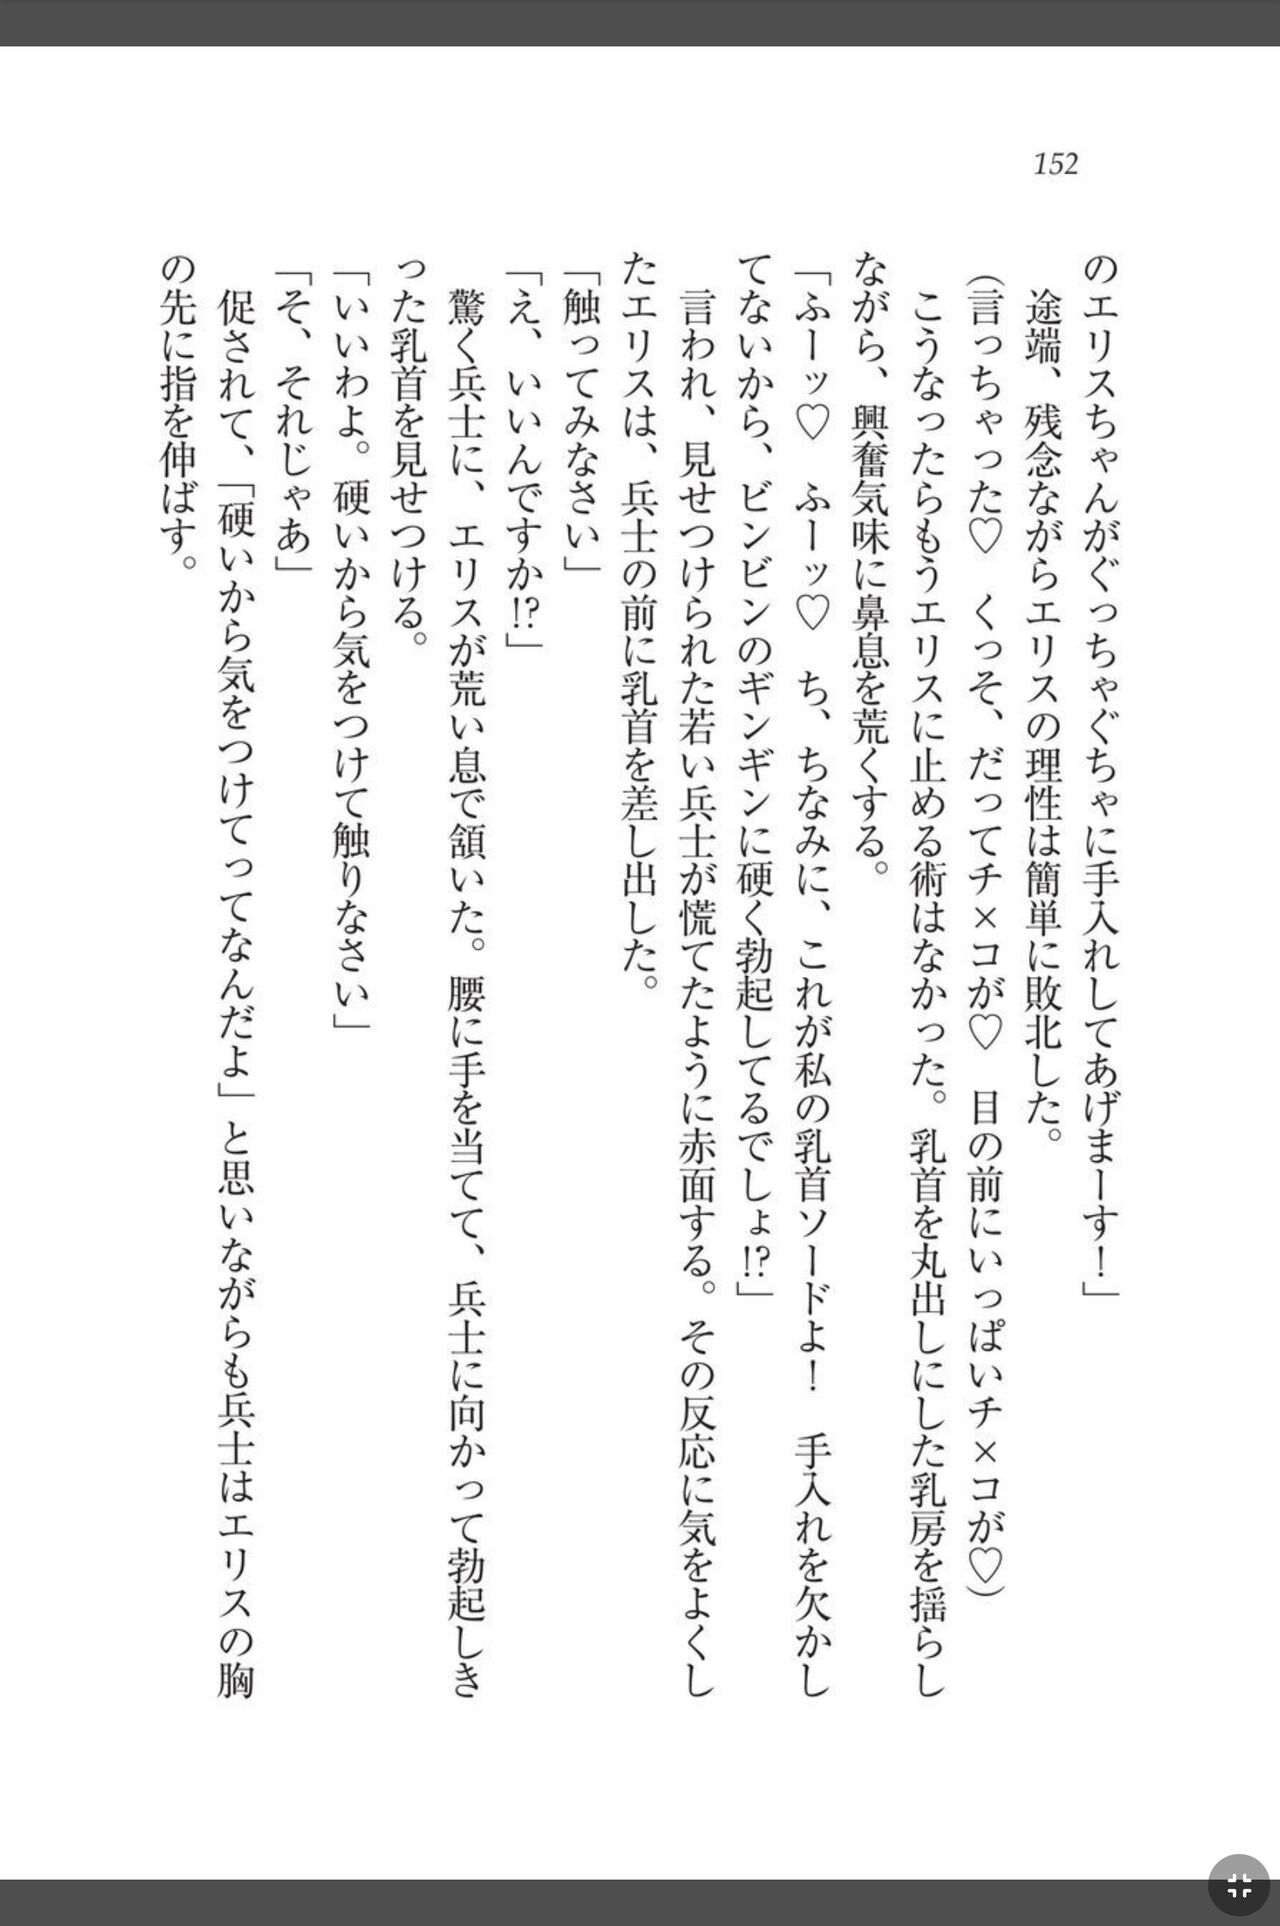 152
のエリスちゃんがぐっちゃぐちゃに手入れしてあげまーす！」
　途端、残念ながらエリスの理性は簡単に敗北した。
（言っちゃった♡　くっそ、だってチ×コが♡　目の前にいっぱいチ×コが♡）
　こうなったらもうエリスに止める術はなかった。乳首を丸出しにした乳房を揺らし
ながら、興奮気味に鼻息を荒くする。
「ふーッ♡　ふーッ♡　ち、ちなみに、これが私の乳首ソードよ！　手入れを欠かし
てないから、ビンビンのギンギンに硬く勃起してるでしょ!?」
　言われ、見せつけられた若い兵士が慌てたように赤面する。その反応に気をよくし
たエリスは、兵士の前に乳首を差し出した。
「触ってみなさい」
「え、いいんですか!?」
　驚く兵士に、エリスが荒い息で頷いた。腰に手を当てて、兵士に向かって勃起しき
った乳首を見せつける。
「いいわよ。硬いから気をつけて触りなさい」
「そ、それじゃあ」
　促されて、「硬いから気をつけてってなんだよ」と思いながらも兵士はエリスの胸
の先に指を伸ばす。